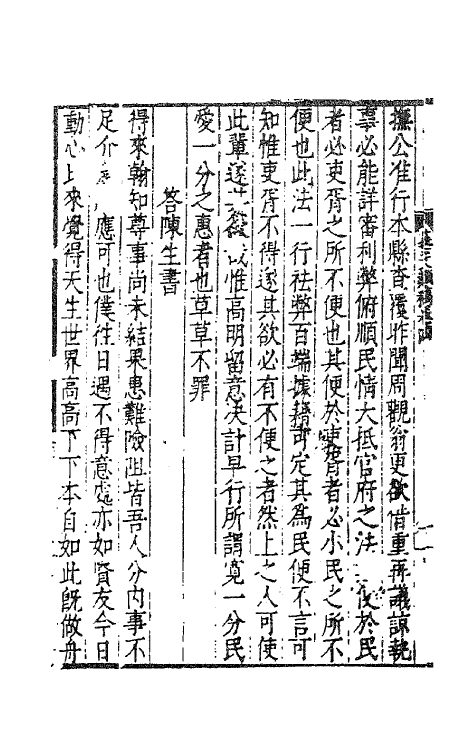 撫公准行本縣查覆昨聞周觀翁更欲借重再議諒執
事必能詳審利弊俯順民情大抵官府之法 便於民
者必吏胥之所不便也其便於吏胥者必小民之所不
便也此法一行祛弊百端據籍可定其為民便不言可
知惟吏胥不得遂其欲必有不便之者然上之人可使
此輩遂其 惟高明留意決計早行所謂寬一分民
愛一分之惠者也草草不罪
答陳生書
得來翰知尊事尚未結果患難險阻皆吾人分內事不
足介 應可也僕往日遇不得意處亦如賢友今日
動心比來覺得天生世界高高下下本自如此既做舟